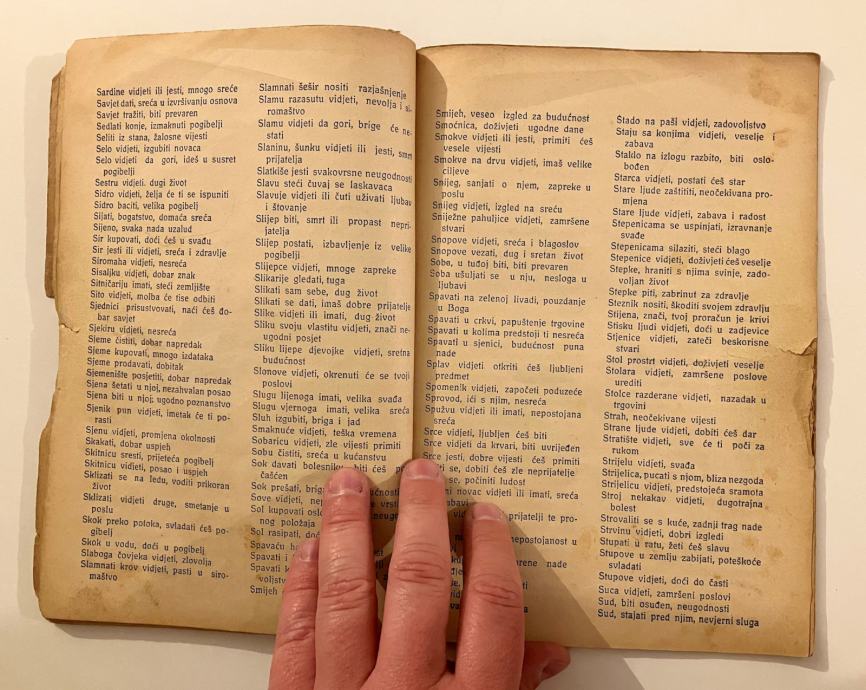 Sardine vidjeti ili jesti, mnogo sreće
Savjet dati, sreća u izvršivanju osnova
Savjet tražiti, biti prevaren
Sedlati konje, izmaknuti pogibelji
Seliti iz stana, žalosne vijesti
Selo vidjeti, izgubiti novaca
Selo vidjeti da gori, ideš u susret
pogibelji
Sestru vidjeti. dugi život
Sidro vidjeti, želja će ti se ispuniti
Sidro baciti, velika pogibelj
Sijati, bogatstvo, domaća sreća
Sijeno, svaka nada uzalud
Sir kupovati, doći ćeš u svađu
Sir jesti ili vidjeti, sreća i zdravlje
Siromaha vidjeti, nesreća
Sisaljku vidjeti, dobar znak
Sitničariju imati, steći zemljište
Sito vidjeti, molba će tise odbiti
Sjednici prisustvovati, naći ćeš do-
bar savjet
Sjekiru vidjeti, nesreća
Sjeme čistiti, dobar napredak
Sjeme kupovati, mnogo izdataka
Sjeme prodavati, dobitak
Sjemenište posjetiti, dobar napredak
Sjena šetati u njoj, nezahvalan posao
Sjena biti u njoj; ugodno poznanstvo
Sjenik pun vidjeti, imetak će ti po-
rasti
Sjenu vidjeti, promjena okolnosti
Skakati, dobar uspjeh
Skitnicu sresti, prijeteća pogibelj
Skitnicu vidjeti, posao i uspjeh
Sklizati se na ledu, voditi prikoran
život
Sklizati vidjeti druge, smetanje u
poslu
Skok preko potoka, svladati ćeš po-
gibelj
Skok u vodu, doći u pogibelj
Slaboga čovjeka vidjeti, zlovolja
Slamnati krov vidjeti, pasti u siro-
maštvo
Slamnati šešir nositi razjašnjenje
Slamu razasutu vidjeti, nevolja i si-
romaštvo
Slamu vidjeti da gori, brige će ne-
stati
Slaninu, šunku vidjeti ili jesti, smrt
prijatelja
Slatkiše jesti svakovrsne neugodnosti
Slavu steći čuvaj se laskavaca
Slavuje vidjeti ili čuti uživati ljubav
i štovanje
Slijep biti, smrt ili propast nepri-
jatelja
Slijep postati, izbavljenje iz velike
pogibelji
Slijepce vidjeti, mnoge zapreke
Slikarije gledati, tuga
Slikati sam sebe, dug život
Slikati se dati, imaš dobre prijatelje
Slike vidjeti ili imati, dug život
Sliku svoju vlastitu vidjeti, znači ne-
ugodni posjet
Sliku lijepe djevojke vidjeti, sretna
budućnost
Slonove vidjeti, okrenuti će se tvoji
poslovi
Slugu lijenoga imati, velika svađa
Slugu vjernoga imati, velika sreća
Sluh izgubiti, briga i jad
Smaknuće vidjeti, teška vremena
Sobaricu vidjeti, zle vijesti primiti
Sobu čistiti, sreća u kućanstvu
Sok davati bolesniku, biti ćeš
čašćen
Sok prešati,
Sove vidjeti,
Sol kupovati
nog položaja
Sol rasipati,
Spavaću
Spavati i
Spavati
Smijeh
Smijeh, veseo izgled za budućnost
Smoćnica, doživjeti ugodne dane
Smokve vidjeti ili jesti, primiti ćeš
vesele vijesti
Smokve na drvu vidjeti, imaš velike
ciljeve
Snijeg, sanjati o njem, zapreke u
poslu
Snijeg vidjeti, izgled na sreću
Sniježne pahuljice vidjeti, zamršene
stvari
Snopove vidjeti, sreća i blagoslov
Snopove vezati, dug i sretan život
Soba, u tuđoj biti, biti prevaren
Soba ušuljati se u nju, nesloga u
ljubavi
Spavati na zelenoj livadi, pouzdanje
u Boga
Spavati u crkvi, papuštenje trgovine
Spavati u kolima predstoji ti nesreća
Spavati u sjenici, budućnost puna
nade
Splav vidjeti otkriti ćeš ljubljeni
predmet
Spomenik vidjeti, započeti poduzeće
Sprovod, ići s njim, nesreća
Spužvu vidjeti ili imati, nepostojana
sreća
Srce vidjeti, ljubljen ćeš biti
Srce vidjeti da krvari, biti uvrijeđen
Srce jesti, dobre vijesti ćeš primiti
se, dobiti ćeš zle neprijatelje
se, počiniti ludost
novac vidjeti ili imati, sreća
prijatelji te pro-
nepostojanost u
nade
Stado na paši vidjeti, zadovoljstvo
Staju sa konjima vidjeti, veselje i
zabava
Staklo na izlogu razbito, biti oslo-
bođen
Starca vidjeti, postati ćeš star
Stare ljude zaštititi, neočekivana pro-
mjena
Stare ljude vidjeti, zabava i radost
Stepenicama se uspinjati, izravnanje
svađe
Stepenicama silaziti, steći blago
Stepenice vidjeti, doživjeti ćeš veselje
Stepke, hraniti s njima svinje, zado-
voljan život
Stepke piti, zabrinut za zdravlje
Steznik nositi, škoditi svojem zdravlju
Stijena, znači, tvoj proračun je krivi
Stisku ljudi vidjeti, doći u zadjevice
Stjenice vidjeti, zateči beskorisne
stvari
Stol prostrt vidjeti, doživjeti veselje
Stolara vidjeti, zamršene poslove
urediti
Stolce razderane vidjeti, nazadak u
trgovini
Strah, neočekivane vijesti
Strane ljude vidjeti, dobiti ćeš dar
Stratište vidjeti, sve će ti poći za
rukom
Strijelu vidjeti, svađa
Strijelica, pucati s njom, bliza nezgoda
Strijelicu vidjeti, predstojeća sramota
Stroj nekakav vidjeti, dugotrajna
bolest
Strovaliti se s kuće, zadnji trag nade
Strvinu vidjeti, dobri izgledi
Stupati u ratu, žeti ćeš slavu
Stupove u zemlju zabijati, poteškoće
svladati
Stupove vidjeti, doći do časti
Suca vidjeti, zamršeni poslovi
Sud, biti osuđen, neugodnosti
Sud, stajati pred njim, nevjerni sluga